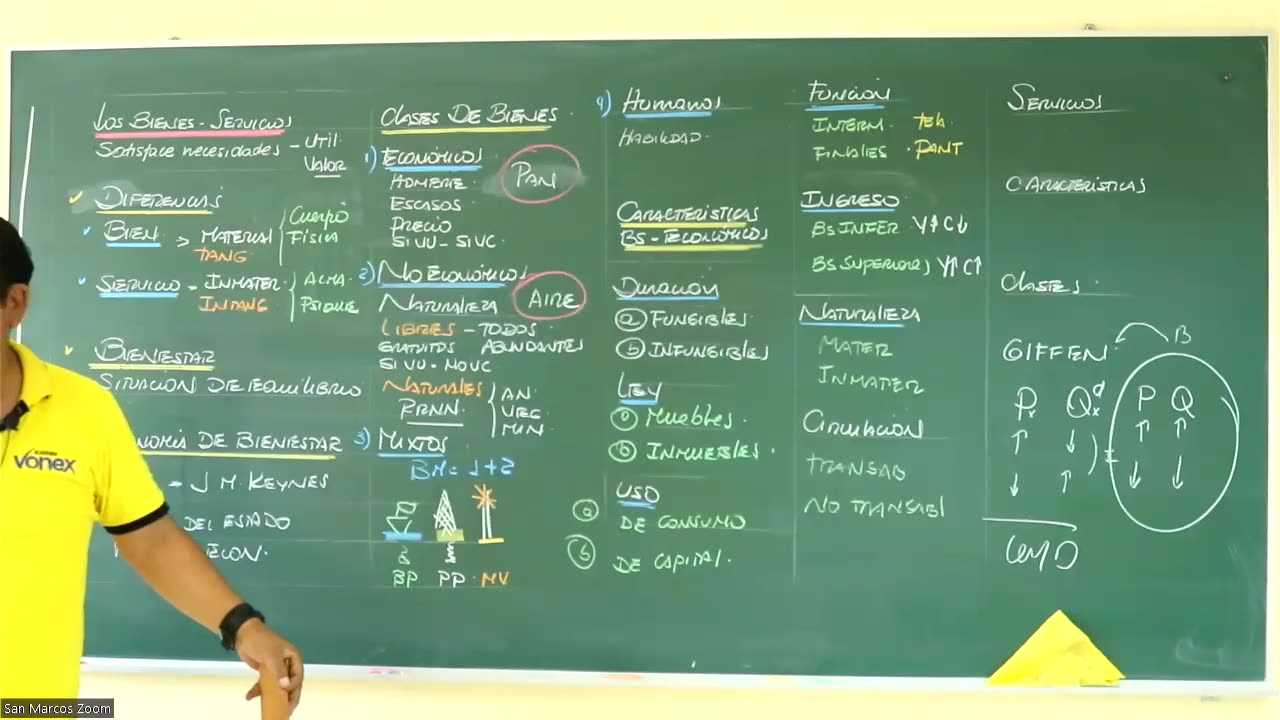 LOS BIENES - SERVICIOS
Satisface necesidades - UTIL.
VALOR
DIFERENCIAS
BIEN > MATERIAL
TANG
CUERPO
FÍSICA
SERVICIO = INMATER.
INTANG
ALMA.
PSIQUE
BIENESTAR
SITUACION DE EQUILIBRIO
DE BIENESTAR
= J M. KEYNES
DEL ESTADO
ECON.
CLASES DE BIENES
1) ECONÓMICOS
HOMBRE.
ESCASOS
PRECIO
SI VU - SI VC
PAN
2) NO ECONÓMICOS
NATURALEZA
AIRE
LIBRES - TODOS
GRATUITOS ABUNDANTES
SI VU - NO VC
NATURALES
RRNN.
AN.
VEG.
MIN.
3) MIXTOS
BM = 1 + 2
BP PP. MV
4) Humanos
HABILIDAD.
CARACTERÍSTICAS
BS - ECONÓMICOS
DURACIÓN
a FUNGIBLES
b INFUNGIBLES
LEY
a Muebles.
b INMUEBLES.
USO
a DE CONSUMO
b DE CAPITAL.
FUNCIÓN
INTERM. TELA.
FINALES. PANT
INGRESO
BS INFER Y↑ C↓
BS SUPERIORES Y↑ C↑
NATURALEZA
MATER
INMATER
CIRCULACION
TRANSAB
NO TRANSABL
SERVICIOS
CARACTERÍSTICAS
CLASES.
GIFFEN. B
Px Qxd P Q
↑ ↓ ≠ ↑ ↑
↓ ↑ ↓ ↓
Ley D
VONEX
San Marcos Zoom